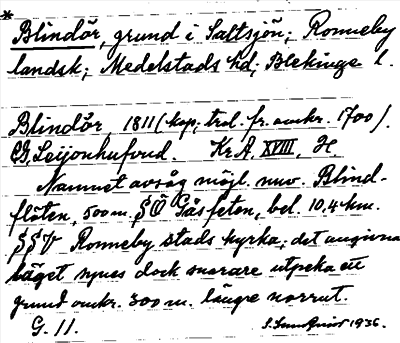 * Blindör, grund i Saltsjön; Ronneby
landsk; Medelstads hd; Blekinge l.
Blindör, 1811 (kop; trol. fr. omkr. 1700).
CG. Leijonhufvud. Kr.A. XVIII, H.
Namnet avsåg möjl. nuv. Blind-
flöten, 500 m. §Ö Gåsfeten, bel. 10,4 km.
§§V Ronneby stads kyrka; det angivna
läget synes dock snarare utpeka ett
grund omkr. 300 m. längre norrut.
G. 11. 1936.